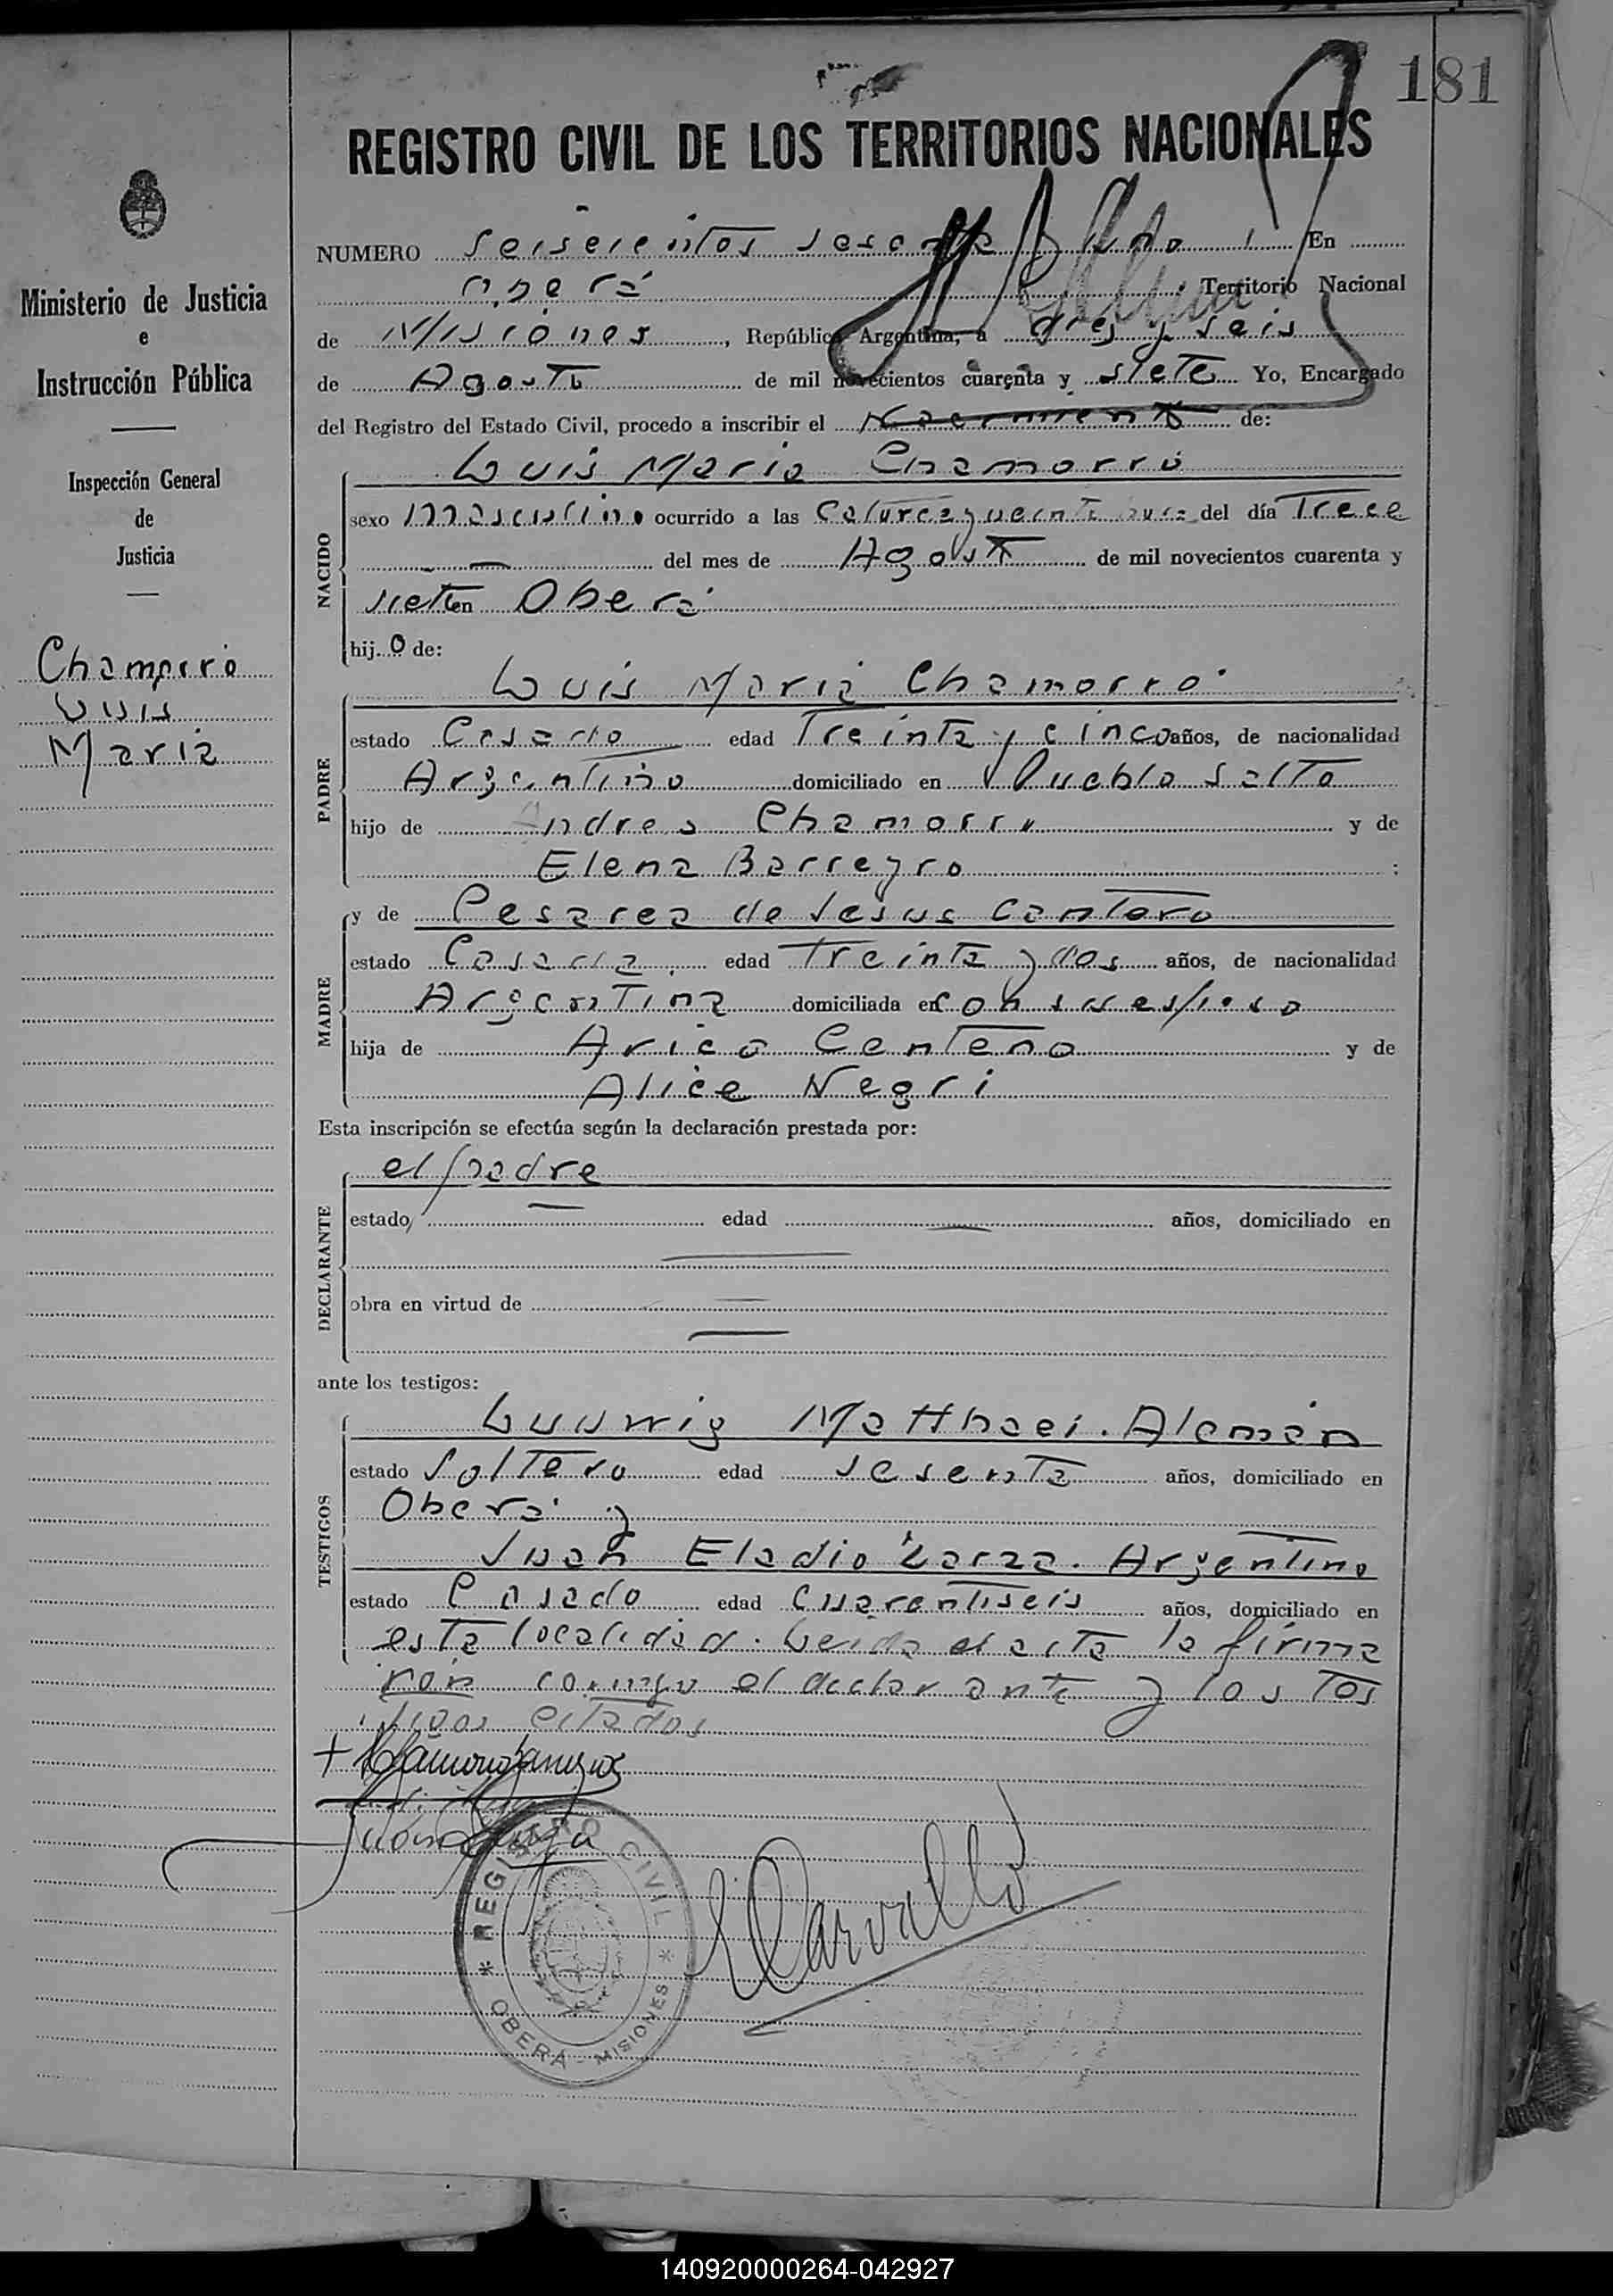 181
REGISTRO CIVIL DE LOS TERRITORIOS NACIONALES
NUMERO Seiscientos sesenta Uno En
Oberá Territorio Nacional
de Misiones, República Argentina, a diez y seis
de Agosto de mil novecientos cuarenta y siete Yo, Encargado
del Registro del Estado Civil, procedo a inscribir el Nacimiento de:
Luis Maria Chamorro
NACIDO
sexo masculino ocurrido a las del día Trece
del mes de Agosto de mil novecientos cuarenta y
siete en Oberá
hijo de:
Luis Maria Chamorro
PADRE
estado Casado edad Treinta y cinco años, de nacionalidad
Argentino domiciliado en Pueblo Salto
hijo de Andres Chamorro y de
Elena Barreyro ;
MADRE
y de Cesarea de Jesus
estado Casada edad Treinta y dos años, de nacionalidad
Argentina domiciliada en con su esposo
hija de Arico Centeno y de
Alice Negri
Esta inscripción se efectúa según la declaración prestada por:
el padre
DECLARANTE
estado edad años, domiciliado en
obra en virtud de
ante los testigos:
Ludwig Matthaei. Alemán
TESTIGOS
estado Soltero edad sesenta años, domiciliado en
Oberá y
Juan Eladio Zarza. Argentino
estado Casado edad cuarentiseis años, domiciliado en
esta localidad. Leida el acta la firma
ron conmigo el declarante y los tes
tigos citados
Carvallo
REGISTRO CIVIL
OBERÁ - MISIONES
Ministerio de Justicia
e
Instrucción Pública
Inspección General
de
Justicia
Chamorro
Luis
Maria
140920000264-042927